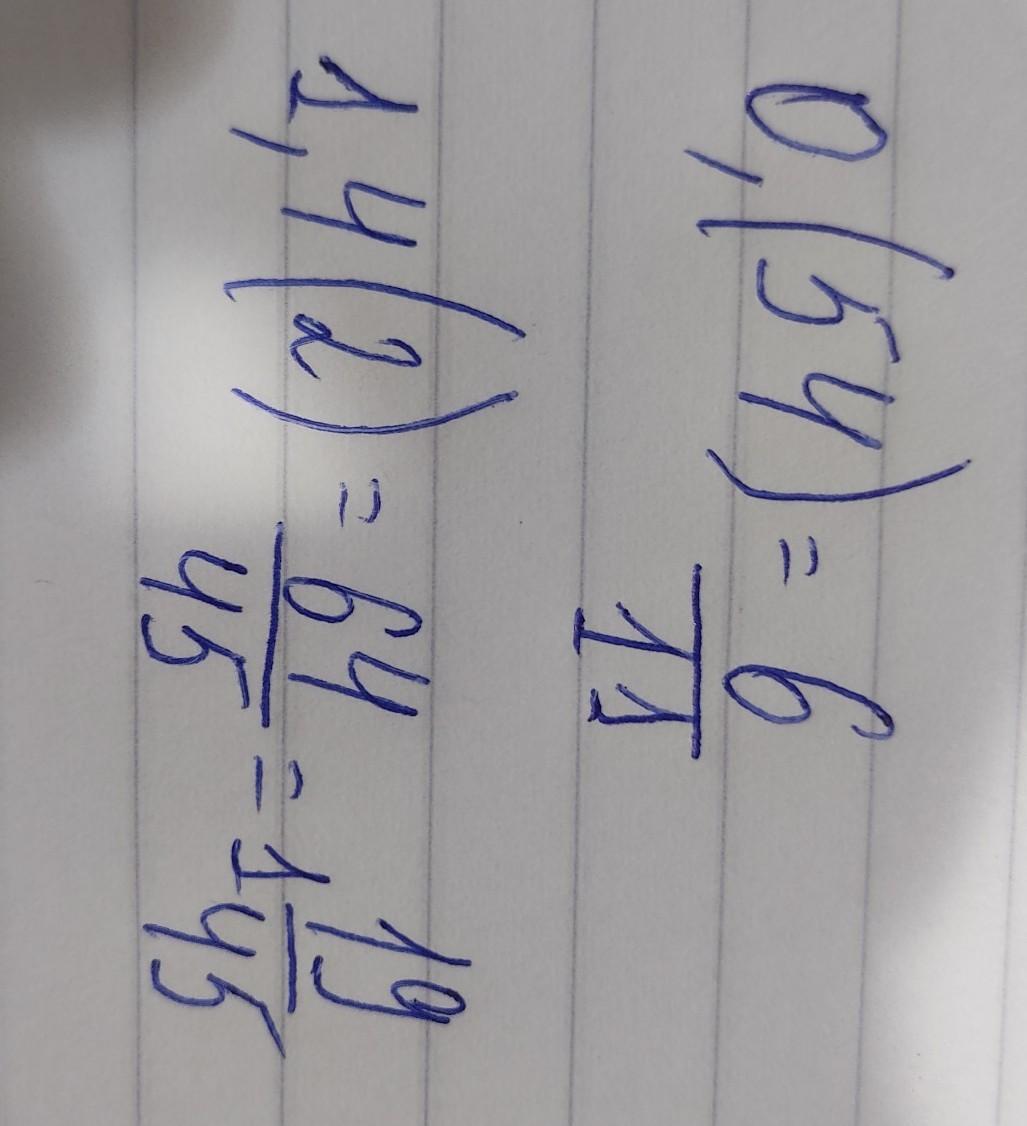 0,(54) = 6/11
1,4(2) = 64/45 = 1 19/45